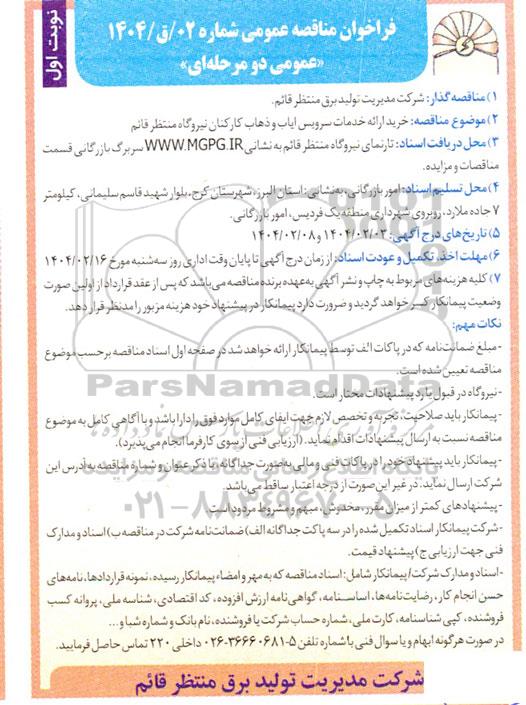 نوبت اول
فراخوان مناقصه عمومی شماره ۰۲/ق/۱۴۰۴
«عمومی دو مرحله‌ای»
۱) مناقصه گذار: شرکت مدیریت تولید برق منتظر قائم.
۲) موضوع مناقصه: خرید ارائه خدمات سرویس ایاب و ذهاب کارکنان نیروگاه منتظر قائم
۳) محل دریافت اسناد: تارنمای نیروگاه منتظر قائم به نشانی WWW.MGPG.IR سربرگ بازرگانی قسمت
مناقصات و مزایده.
۴) محل تسلیم اسناد: امور بازرگانی، به نشانی: استان البرز، شهرستان کرج، بلوار شهید قاسم سلیمانی، کیلومتر
۷ جاده ملارد، روبروی شهرداری منطقه یک فردیس، امور بازرگانی.
۵) تاریخ‌های درج آگهی: ۱۴۰۴/۰۲/۰۳ و ۱۴۰۴/۰۲/۰۸
۶) مهلت اخذ، تکمیل و عودت اسناد: از زمان درج آگهی تا پایان وقت اداری روز سه‌شنبه مورخ ۱۴۰۴/۰۲/۱۶
۷) کلیه هزینه‌های مربوط به چاپ و نشر آگهی به عهده برنده مناقصه می‌باشد که پس از عقد قرارداد از اولین صورت
وضعیت پیمانکار کسر خواهد گردید و ضرورت دارد پیمانکار در پیشنهاد خود هزینه مزبور را مدنظر قرار دهد.
نکات مهم:
-مبلغ ضمانت‌نامه که در پاکات الف توسط پیمانکار ارائه خواهد شد در صفحه اول اسناد مناقصه برحسب موضوع
مناقصه تعیین شده است.
-نیروگاه در قبول یا رد پیشنهادات مختار است.
-پیمانکار باید صلاحیت، تجربه و تخصص لازم جهت ایفای کامل موارد فوق را دارا باشد و با آگاهی کامل به موضوع
مناقصه نسبت به ارسال پیشنهادات اقدام نماید. (ارزیابی فنی از سوی کارفرما انجام می‌پذیرد).
-پیمانکار باید پیشنهاد خود را در پاکات فنی و مالی به صورت جداگانه، با ذکر عنوان و شماره مناقصه به آدرس این
شرکت ارسال نماید، در غیر این صورت از درجه اعتبار ساقط می‌باشد.
-پیشنهادهای کمتر از میزان مقرر، مخدوش، مبهم و مشروط مردود است.
-شرکت پیمانکار اسناد تکمیل شده را در سه پاکت جداگانه الف) ضمانت‌نامه شرکت در مناقصه ب) اسناد و مدارک
فنی جهت ارزیابی ج) پیشنهاد قیمت.
-اسناد و مدارک شرکت/پیمانکار شامل: اسناد مناقصه که به مهر و امضاء پیمانکار رسیده، نمونه قراردادها، نامه‌های
حسن انجام کار، رضایت‌نامه‌ها، اساسنامه، گواهی‌نامه ارزش افزوده، کد اقتصادی، شناسه ملی، پروانه کسب
فروشنده، کپی شناسنامه، کارت ملی، شماره حساب شرکت یا فروشنده، نام بانک و شماره شبا و...
در صورت هرگونه ابهام و یا سوال فنی با شماره تلفن ۵-۰۲۶-۳۶۶۶۰۶۸۱ داخلی ۲۲۰ تماس حاصل فرمایید.
شرکت مدیریت تولید برق منتظر قائم
ParsNamadData
۰۲۱-۸۸۳۴۹۶۷۰-۵